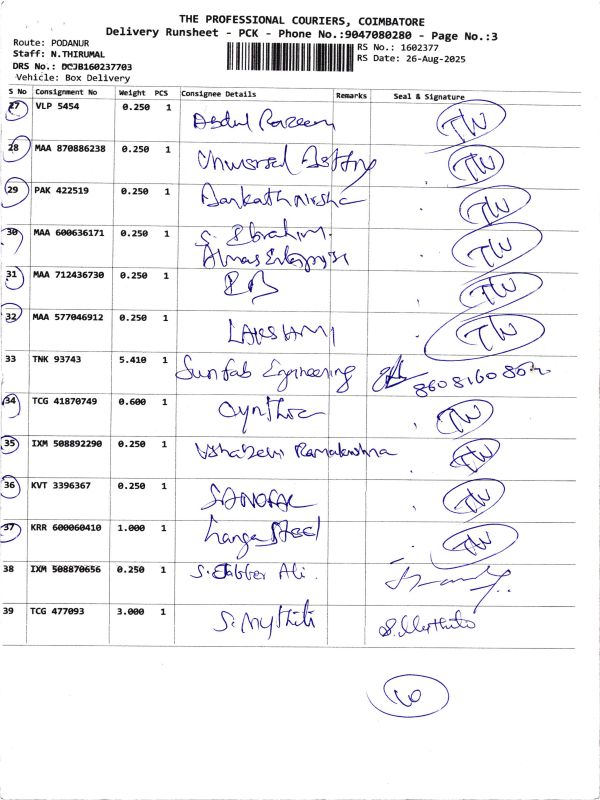 THE PROFESSIONAL COURIERS, COIMBATORE
Delivery Runsheet - PCK - Phone No.:9047080280 - Page No.:3
Route: PODANUR
RS No.: 1602377
Staff: N.THIRUMAL
RS Date: 26-Aug-2025
DRS No.: DCJB160237703
Vehicle: Box Delivery
S No Consignment No Weight PCS Consignee Details Remarks Seal & Signature
27 VLP 5454 0.250 1 Abdul Razeem TW
28 MAA 870886238 0.250 1 TW
29 PAK 422519 0.250 1 TW
30 MAA 600636171 0.250 1 S. Ebrahim. TW
Almas Enterprise
31 MAA 712436730 0.250 1 TW
32 MAA 577046912 0.250 1 LAKSHMI TW
33 TNK 93743 5.410 1 Sunfab Engineering
34 TCG 41870749 0.600 1 TW
35 IXM 508892290 0.250 1 Ramakrishna TW
36 KVT 3396367 0.250 1 TW
37 KRR 600060410 1.000 1 Steel TW
38 IXM 508870656 0.250 1 S. Jabber Ali.
39 TCG 477093 3.000 1 S. Mythili